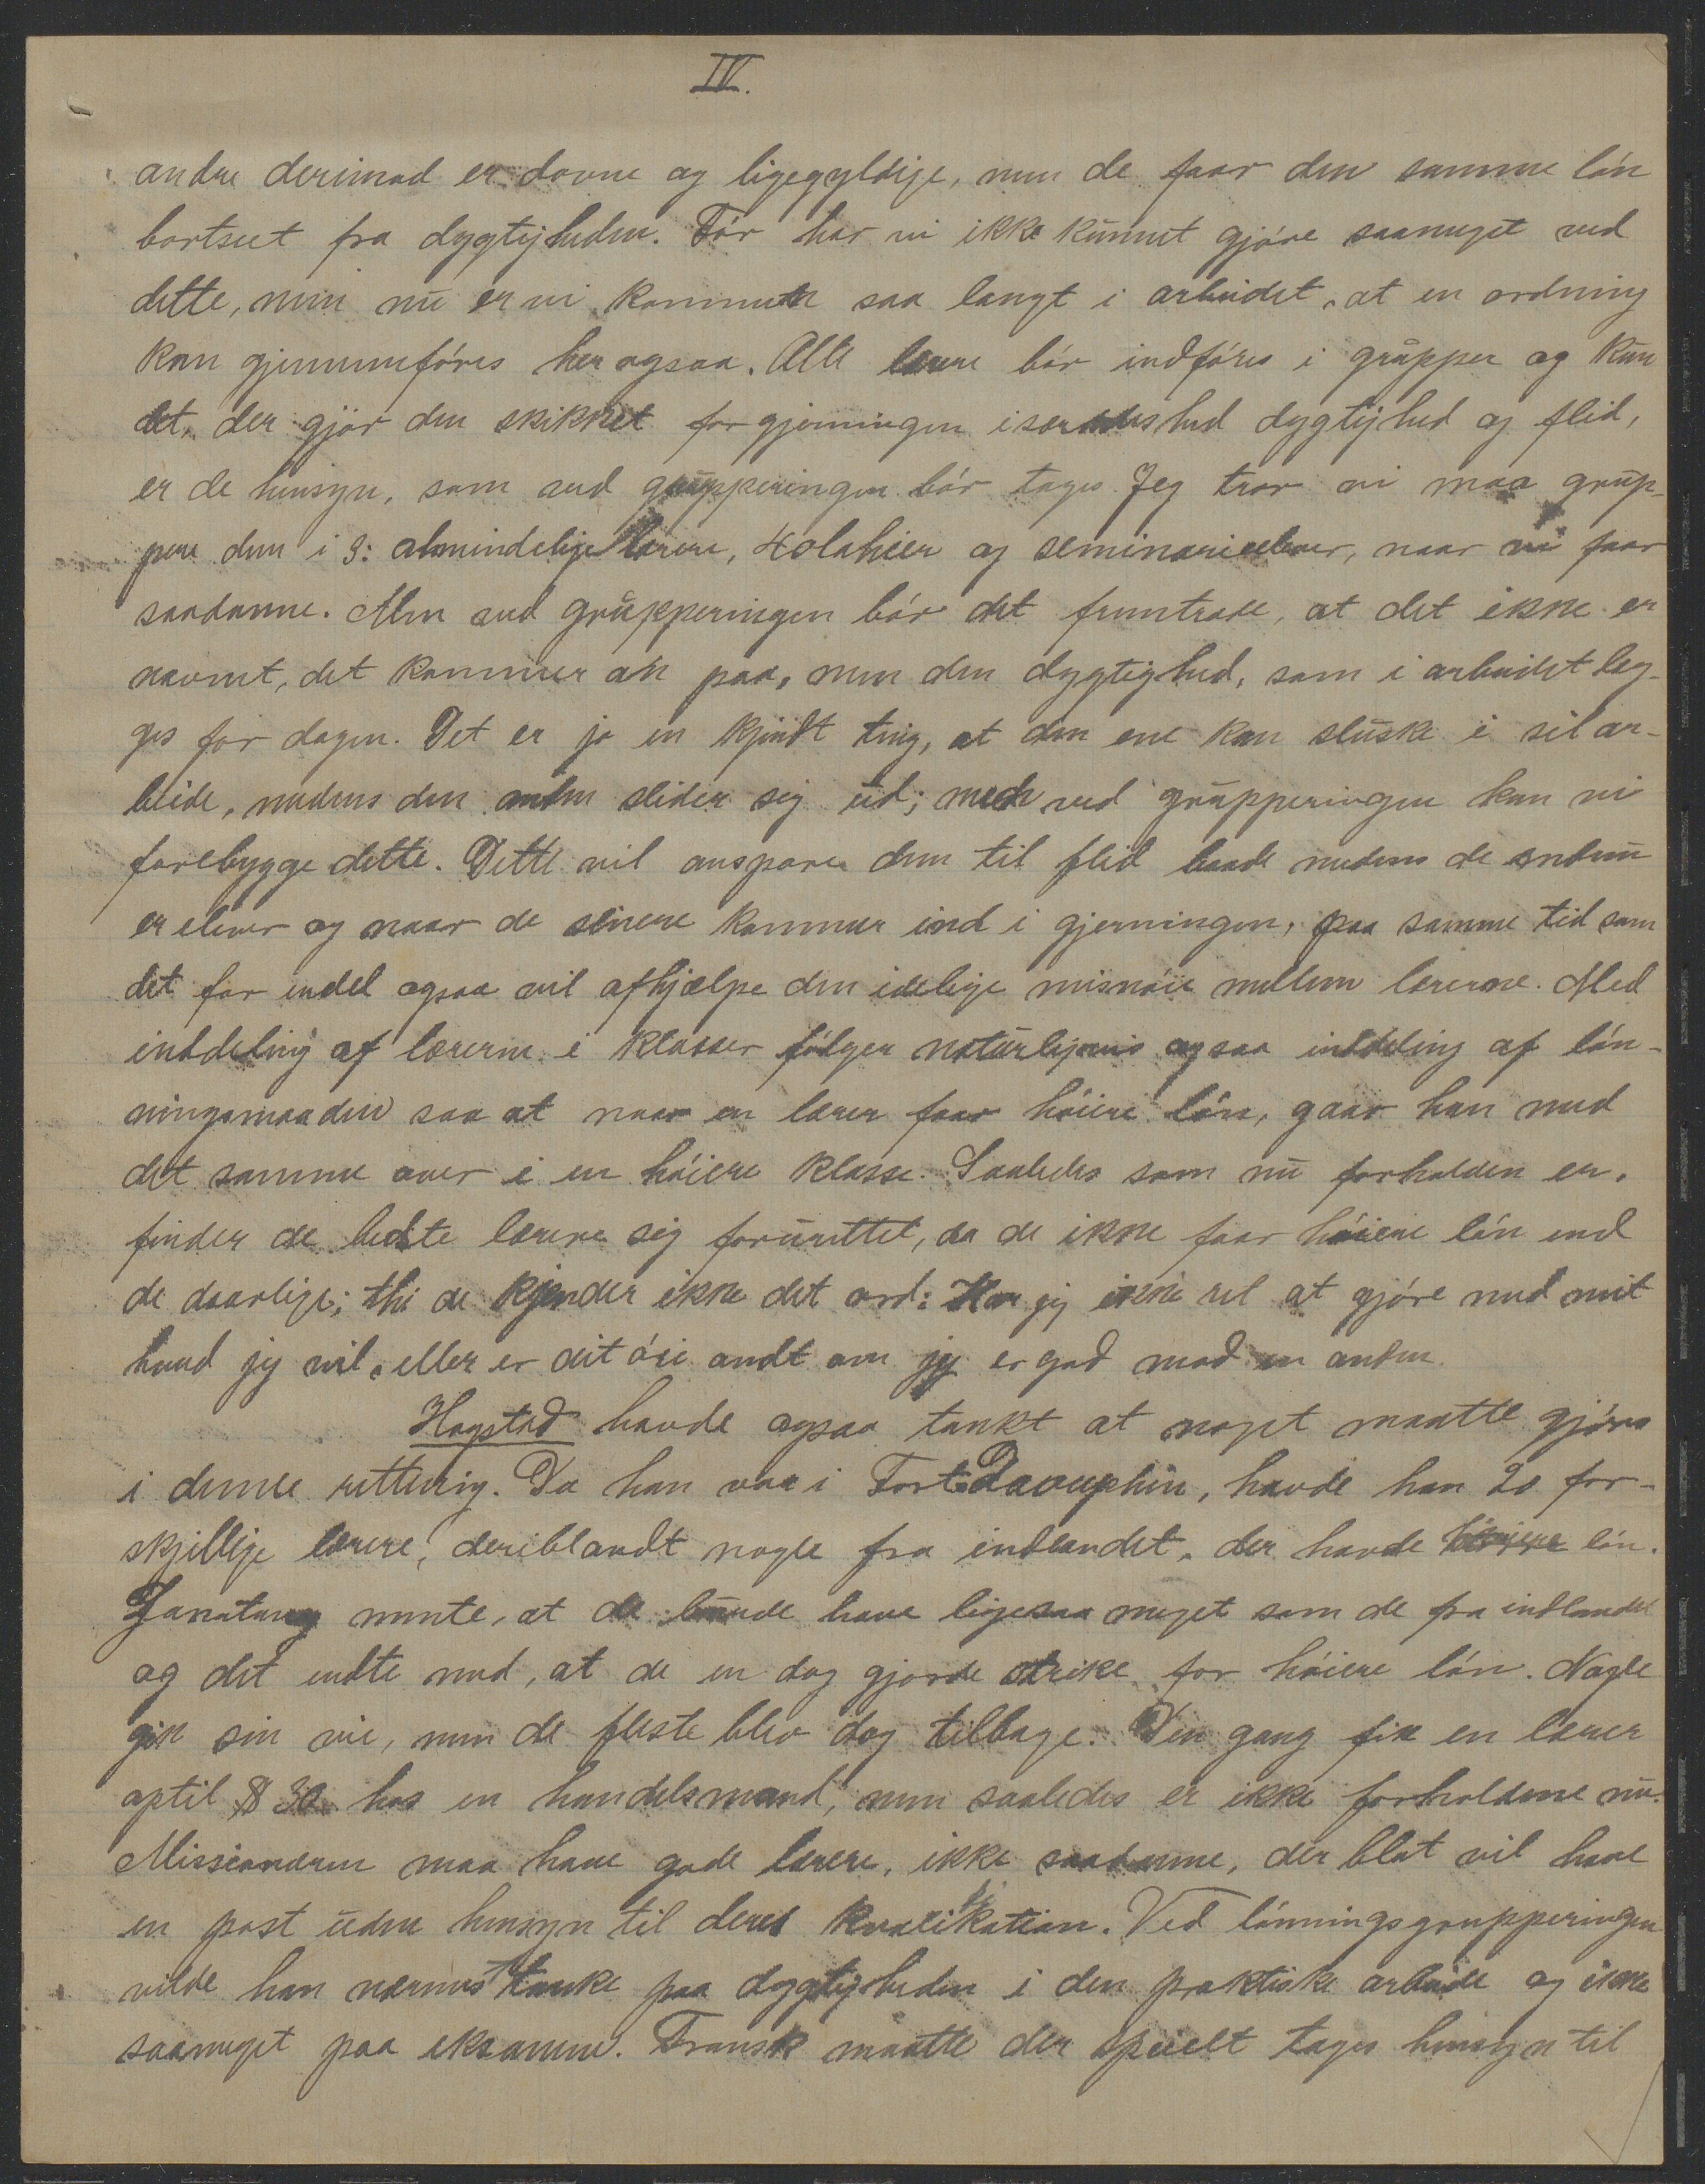 IV.
andre derimod er dovne og ligegyldige, men de faar den samme lón
bortseet fra dygtigheden. Fór har vi ikke kunnet gjóre saameget ved
dette, men nu er vi kommen saa langt i arbeidet, at en ordning
kan gjennemfóres her ogsaa. Alle lærere bór indfóres i grupper og kun
det, der gjór dem skikket for gjerningen isærdeleshed dygtighed og flid,
er de hensyn, som ved grupperingen bór tages. Jeg tror vi maa grup-
pere dem i 3: almindelige lærere, 4olahier og seminarieelever, naar vi faar
saadanne. Men ved grupperingen bór det fremtræde, at det ikke er
navnet, det kommer an paa, men den dygtighed, som i arbeidet læg-
ges for dagen. Det er jo en kjendt ting, at den ene kan sluske i sit ar-
beide, medens den anden slider sig ud; men ved grupperingen kan vi
forebygge dette. Dette vil anspore dem til flid baade medens de endnu
er elever og naar de senere kommer ind i gjerningen, paa samme tid som
det for endel ogsaa vil afhjælpe den idelige misnóie mellem lærerne. Med
inddeling af lærerne i klasser fólger naturligvis ogsaa inddeling af lón-
ningsmaaden saa at naar en lærer faar hóiere lón, gaar han med
det samme over i en hóiere klasse. Saaledes som nu forholden er,
finder de bedste lærere sig forurettet, da de ikke faar hóiere lón end
de daarlige; thi de kjender ikke det ord: Har jeg ikke ret at gjóre med mit
hvad jeg vil, eller er dit óie ondt om jeg er god mod en anden.
Hogstad havde ogsaa tænkt at noget maatte gjóres
i denne retting. Da han var i Fort Dauphin, havde han 20 for-
skjellige lærere, deriblandt nogle fra indlandet, der havde hóiere lón.
Tanatanoy mente, at de burde have ligesaa meget som de fra indlandet
og det endte med, at de en dag gjorde strike for hóiere lón. Nogle
gik sin vei, men de fleste blev dog tilbage. Den gang fik en lærer
optil $ 30 hos en handelsmand, men saaledes er ikke forholdene nu.
Missionæren maa have gode lærere, ikke saadanne, der blot vil have
en post uden hensyn til deres kvalifikation. Ved lónningsgrupperingen
vilde han nærmest tænke paa dygtigheden i den praktiske arbeide og ikke
saameget paa eksamen. Fransk maatte der specielt tages hensyn til